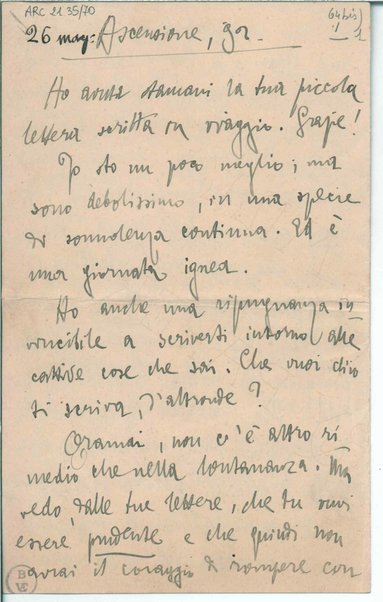 ARC 21.35/70
64 bis) 1
1
26 mag: Ascensione, 92.
Ho avuta stamani la tua piccola
lettera scritta in viaggio. Grazie!
Io sto un poco meglio; ma
sono debolissimo, in una specie
di sonnolenza continua. Ed è
una giornata ignea.
Ho anche una ripugnanza in
vincibile a scriverti intorno alle
cattive cose che sai. Che vuoi ch'io
ti scriva, d'altronde?
Oramai, non c'è altro ri
medio che nella lontananza. Ma
vedo, dalle tue lettere, che tu vuoi
essere prudente e che quindi non
avrai il coraggio di rompere con
B
VE